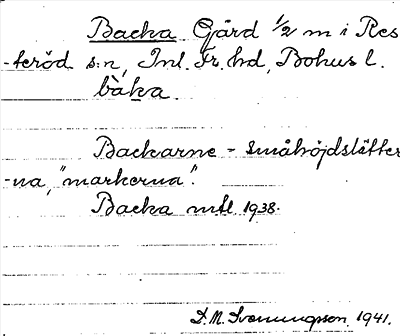 Backa Gård 1/2 m i Res
-teröd s:n, Inl. Fr. hd, Bohus l.
bàka.
Backarne - småhöjdslätter
-na, "markerna".
Backa mtl 1938.
D. M. Svenungsson 1941.